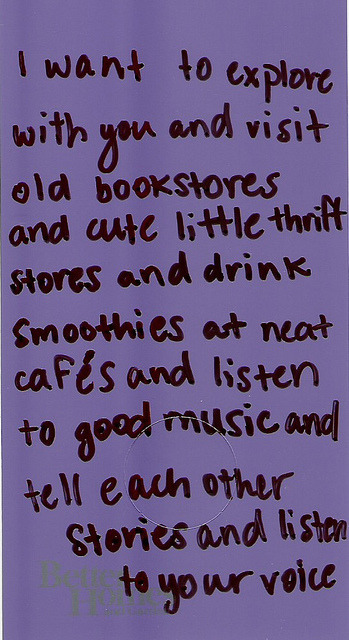 I want to explore
with you and visit
old bookstores
and cute little thrift
stores and drink
smoothies at neat
cafés and listen
to good music and
tell each other
stories and listen
to your voice
Better
Homes